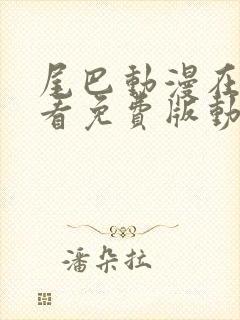 尾巴動漫在
看免費版動
潘朵拉